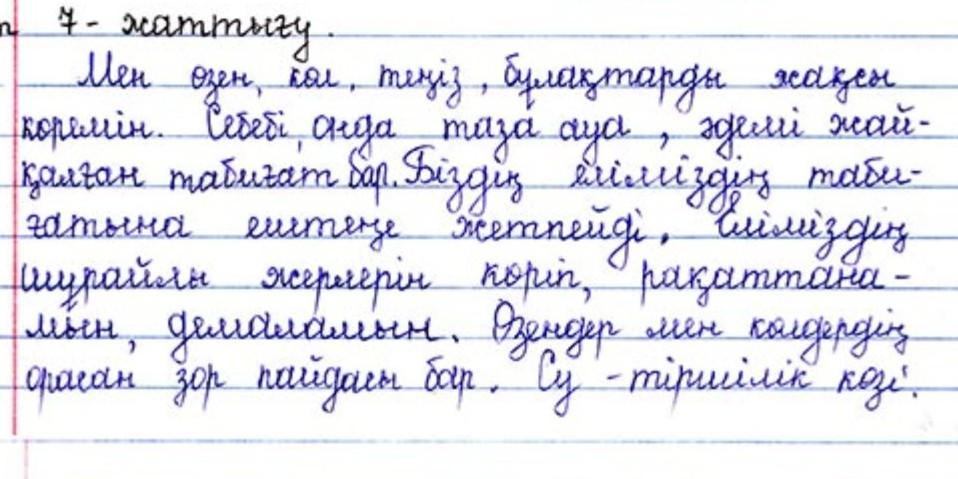 7 - жаттығу.
Мен өзен, көл, теңіз, бұлақтарды жақсы
көремін. Себебі, онда таза ауа, әдемі жай-
қалған табиғат бар. Біздің еліміздің таби-
ғатына ештеңе жетпейді. Еліміздің
шұрайлы жерлерін көріп, рақаттана-
мын, демаламын. Өзендер мен көлдердің
орасан зор пайдасы бар. Су - тіршілік көзі.